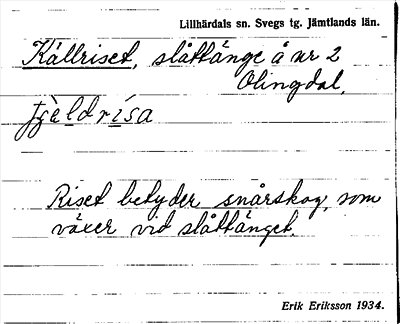 Lillhärdals sn. Svegs tg. Jämtlands län.
Källriset, slåttänge å nr 2
Olingdal,
tjèldrísa
Riset betyder snårskog, som
växer vid slåttänget.
Erik Eriksson 1934.